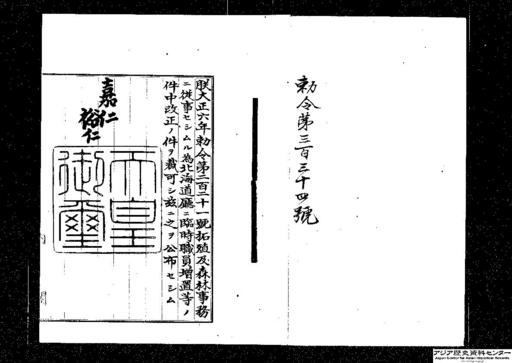 勅令第三百三十四號
朕大正六年勅令第二百二十一號拓殖及森林事務
ニ從事セシムル爲北海道廳ニ臨時職員增置等ノ
件中改正ノ件ヲ裁可シ玆ニ之ヲ公布セシム
嘉仁
裕仁
天皇
御璽
アジア歴史資料センター
Japan Center for Asian Historical Records